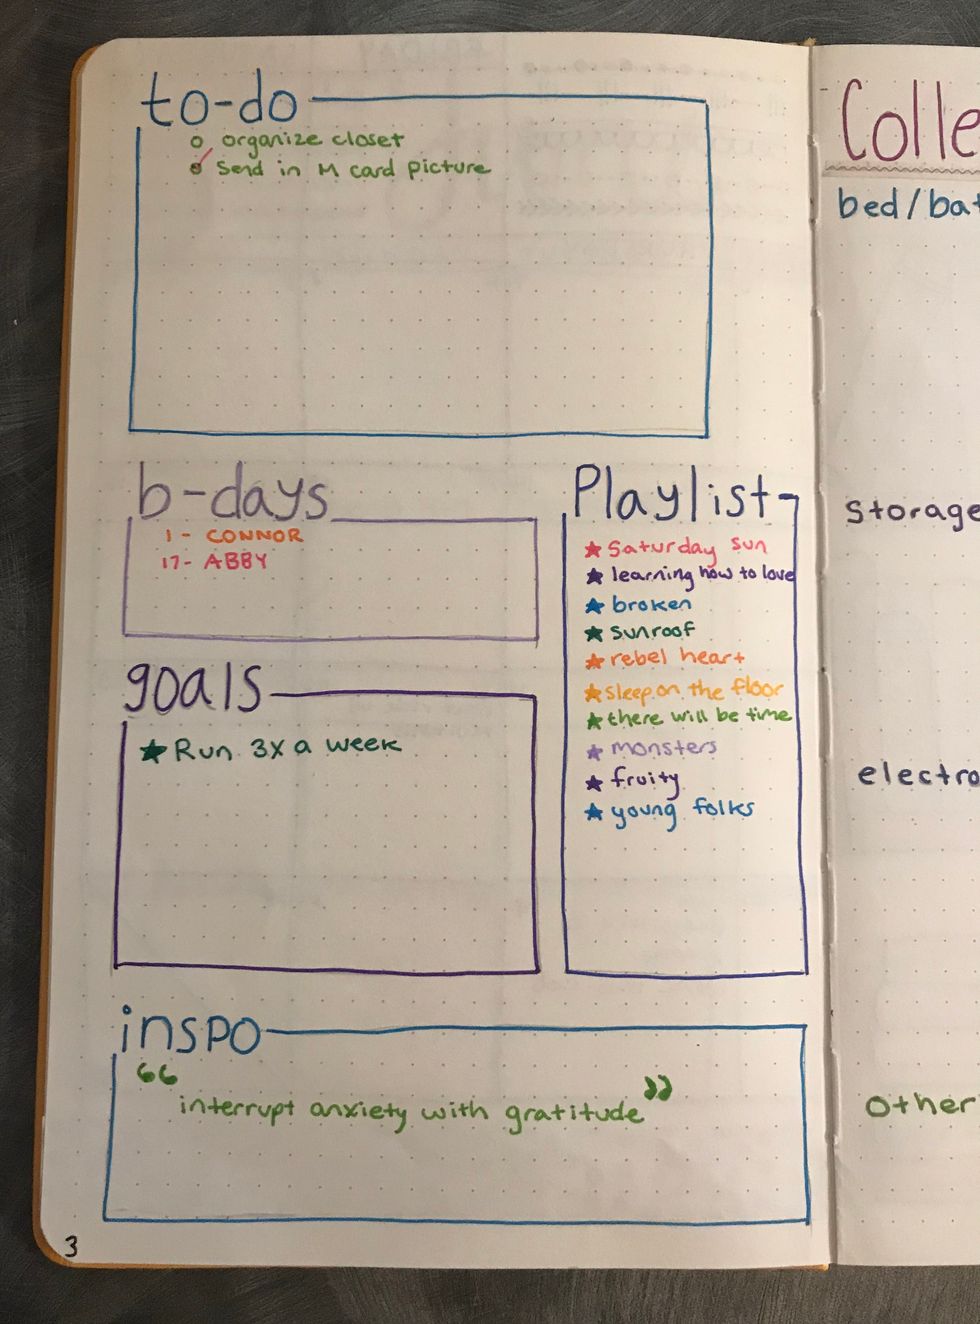 to-do
organize closet
Send in M card picture
b-days
1 - CONNOR
17 - ABBY
goals
Run 3x a week
Playlist
Saturday sun
learning how to love
broken
sunroof
rebel heart
sleep on the floor
there will be time
monsters
fruity
young folks
inspo
“interrupt anxiety with gratitude”
3
Colle
bed/bat
storage
electro
other